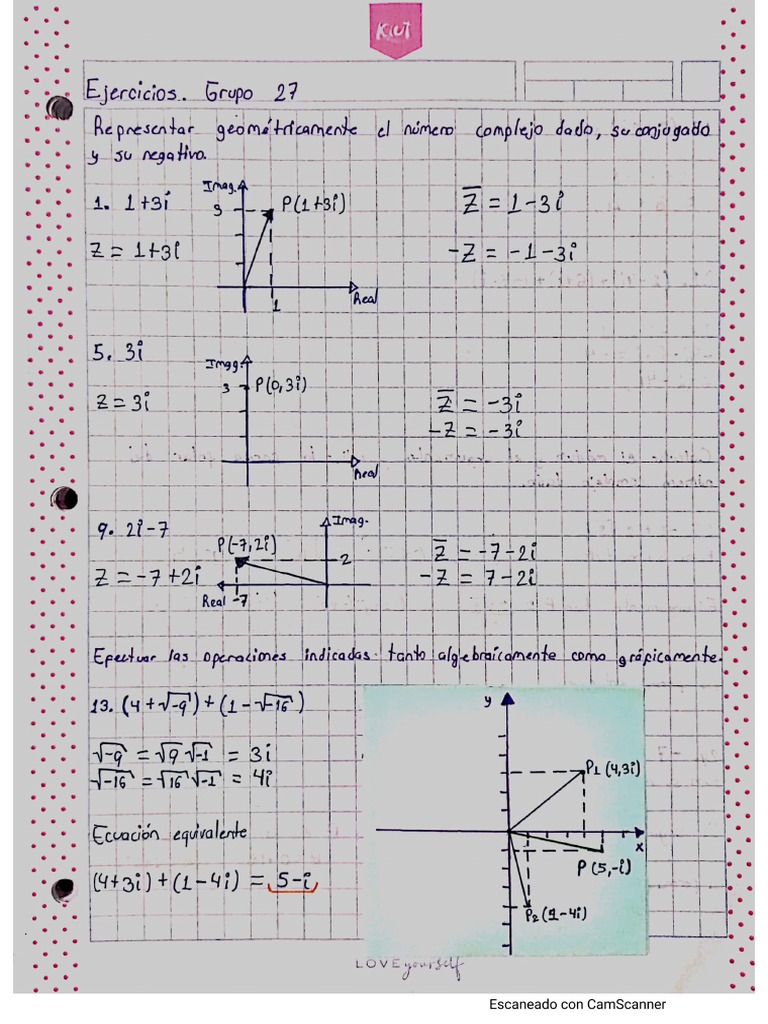 KIUT
Ejercicios. Grupo 27
Representar geométricamente el número complejo dado, su conjugado
y su negativo.
1. 1+3i
Z = 1+3i
Imag.
3
P(1+3i)
1
Real
Z̅ = 1-3i
-Z = -1-3i
5. 3i
Z = 3i
Imag.
3
P(0,3i)
Real
Z̅ = -3i
-Z = -3i
9. 2i-7
Z = -7+2i
Imag.
P(-7,2i)
2
Real -7
Z̅ = -7-2i
-Z = 7-2i
Efectuar las operaciones indicadas tanto algebraicamente como gráficamente.
13. (4+√-9)+(1-√-16)
√-9 = √9 √-1 = 3i
√-16 = √16 √-1 = 4i
Ecuación equivalente
(4+3i)+(1-4i) = 5-i
y
P1 (4,3i)
x
P (5,-i)
P2 (1-4i)
LOVE yourself
Escaneado con CamScanner